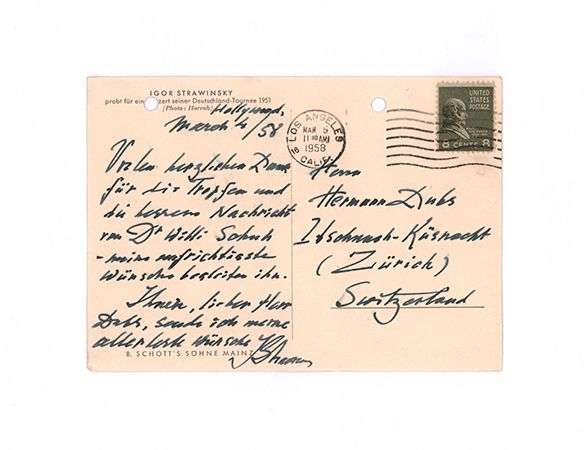 IGOR STRAWINSKY
probt für ein Konzert seiner Deutschland-Tournee 1951
(Photo: Horrab)
Hollywood,
March 4/58
Vielen herzlichen Dank
für die Tropfen und
die bessere Nachricht
von Dr Willi Schuh
– meine aufrichtigste
Wünsche begleiten ihn.
Ihnen, lieber Herr
Dubs, sende ich meine
allerbeste Wünsche
IStrawin
B. SCHOTT'S SÖHNE MAINZ
LOS ANGELES
MAR 5
11 AM
1958
CALIF.
UNITED
STATES
POSTAGE
8 CENTS 8
Herrn
Hermann Dubs
Itschnach-Küsnacht
(Zürich)
Switzerland